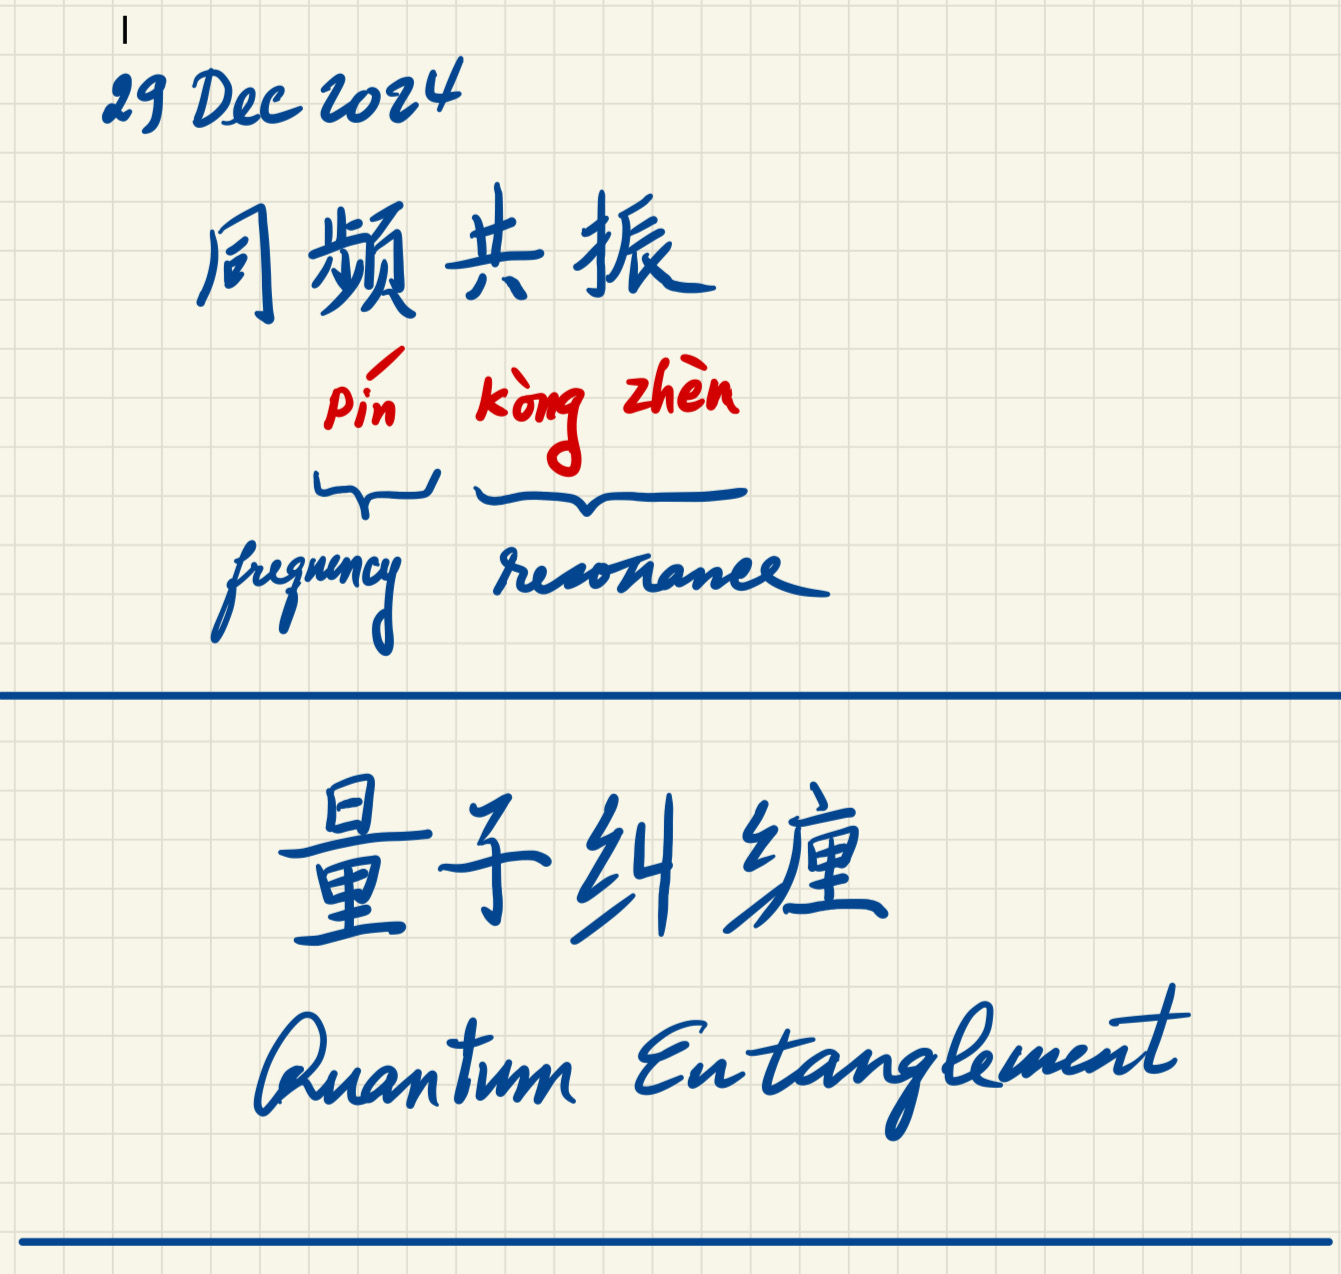 29 Dec 2024
同频共振
pín kòng zhèn
frequency resonance
量子纠缠
Quantum Entanglement